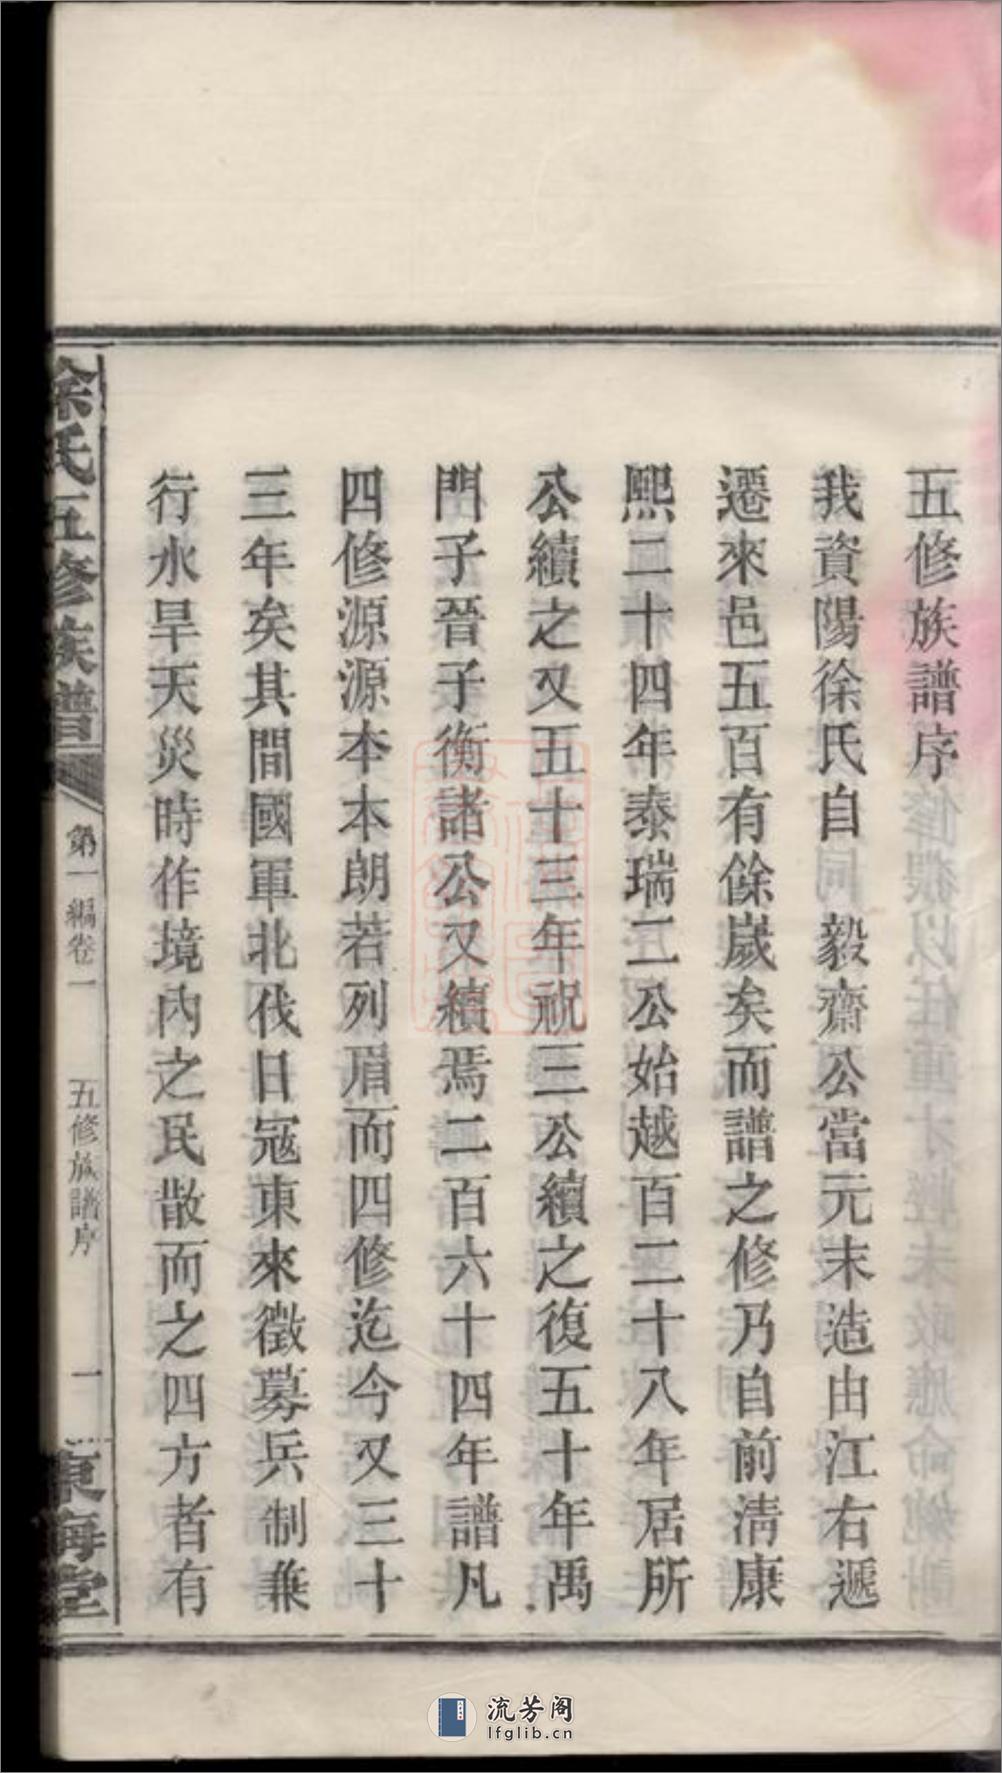 五修族譜序
我資陽徐氏自　毅齋公當元末造由江右遞
遷來邑五百有餘歲矣而譜之修乃自前清康
熙二十四年泰瑞二公始越百二十八年居所
公續之又五十三年祝三公續之復五十年禹
門子晉子衡諸公又續焉二百六十四年譜凡
四修源源本本朗若列眉而四修迄今又三十
三年矣其間國軍北伐日寇東來徵募兵制兼
行水旱天災時作境內之民散而之四方者有
徐氏五修族譜
第一編卷一
五修族譜序
一
東海堂
流芳阁
lfglib.cn